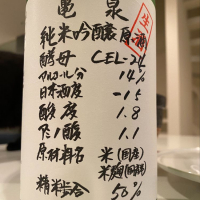 亀泉
純米吟醸原酒
生
酵母 CEL-24
アルコール分 14%
日本酒度 -15
酸度 1.8
アミノ酸 1.1
原材料名 米(国産)
米麹(国産米)
精米歩合 50%